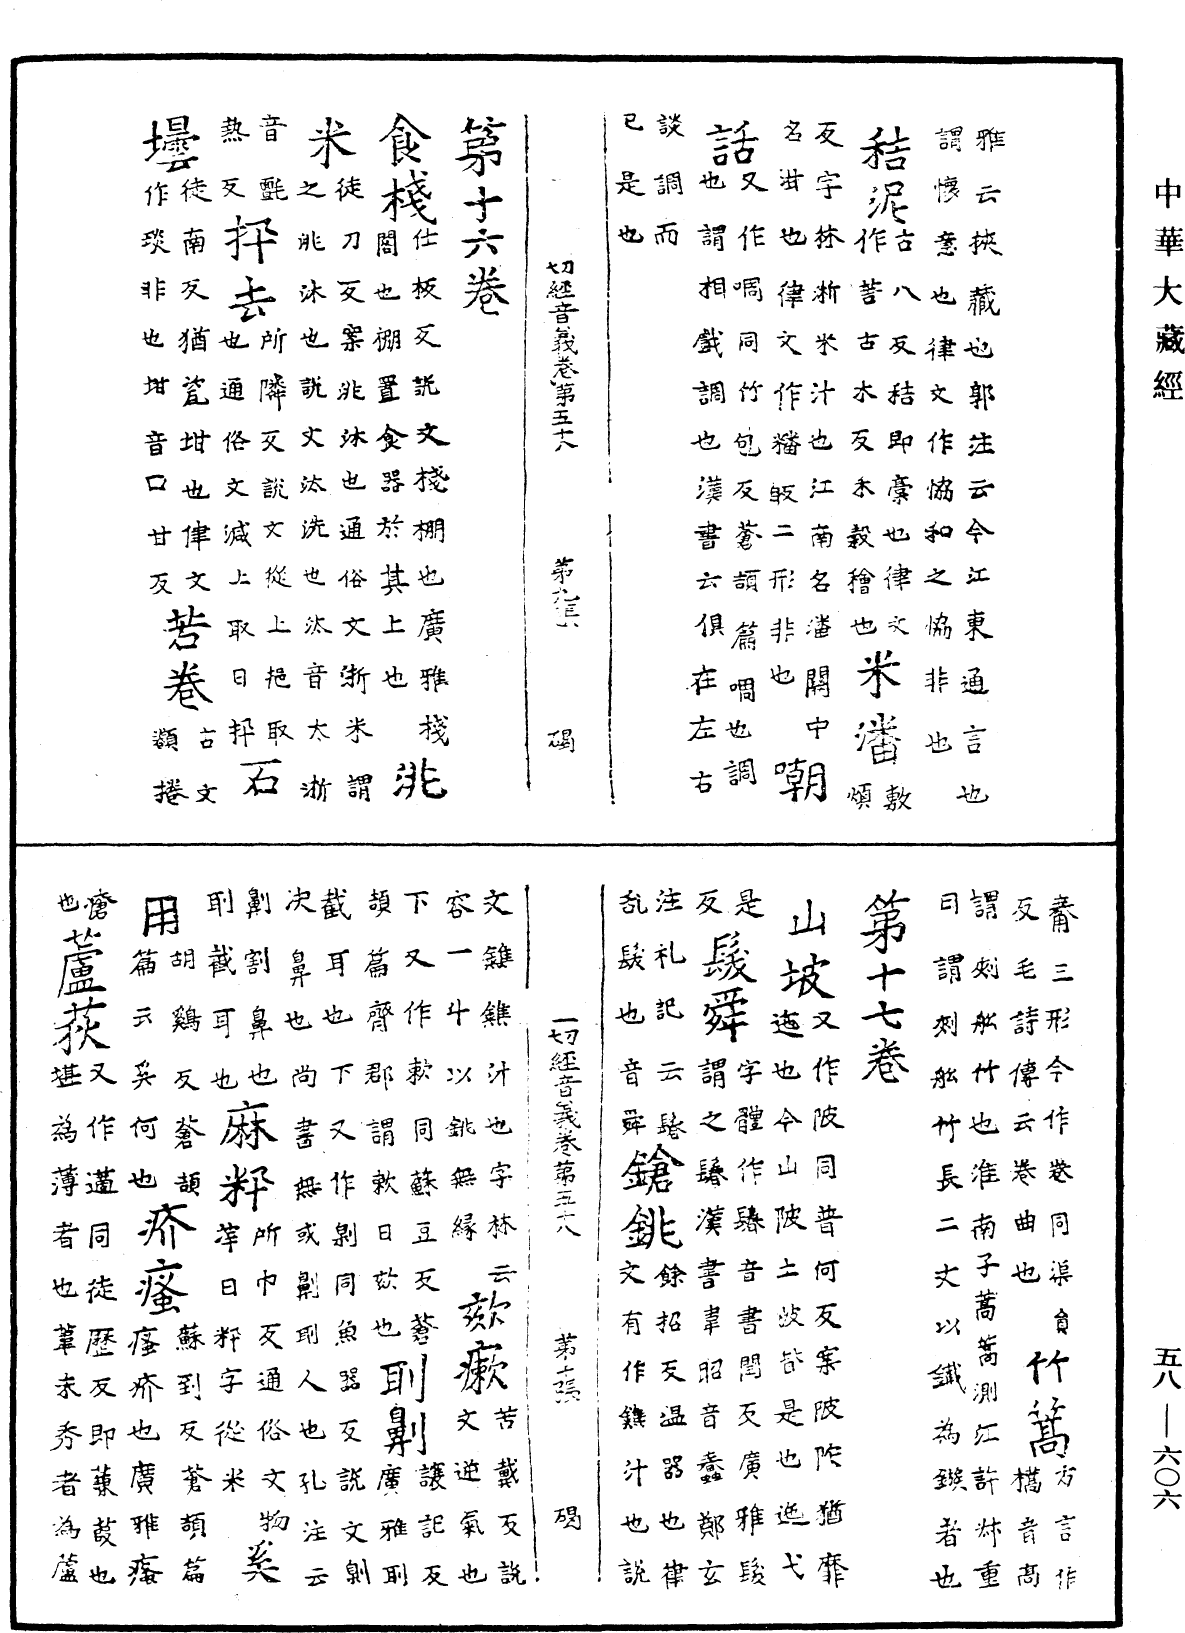 中華大藏經
五八—六〇六
雅云挾藏也郭注云今江東通言也
謂懷意也律文作恊和之恊非也
秸泥古八反秸即稾也律文
作𦮼古木反禾穀檜也
米潘敷
煩
反字林淅米汁也江南名潘關中
名泔也律文作䊩㽹二形非也
嘲
話又作啁同竹包反蒼頡篇啁也調
也謂相戲調也漢書云俱在左右
談調而
已是也
切經音義卷第五十八 第九張 碣
第十六卷
食棧仕板反說文棧棚也廣雅棧
閣也棚置食器於其上也
洮
米徒刀反案洮沐也通俗文淅米謂
之洮沐也說文汰洗也汰音太淅
音
𤍠反
抙去所隣反說文從上挹取
也通俗文減上取曰抙
石
壜徒南反猶瓷坩也律文
作琰非也坩音口甘反
𦭞卷古文
𩔗捲
𢍏三形今作卷同渠員
反毛詩傳云卷曲也
竹篙方言作
檇音高
謂刾舩竹也淮南子蒿篙測江許叔重
曰謂刾舩竹長二丈以鐵為鏃者也
第十七卷
山坡又作陂同普何反案陂陀猶靡
迤也今山陂土坡皆是也迤弋
是
反
鬉舜字體作鬊音書閏反廣雅鬉
謂之鬊漢書韋昭音蠢鄭玄
注礼記云鬊
乱鬉也音舜
鎗銚餘招反温器也律
文有作鐎汁也說
文鑊鐎汁也字林云
容一斗以銚無緣
欬瘶苦戴反說
文逆氣也
下又作㰽同蘇豆反蒼
頡篇齊郡謂㰽曰欬也
刵劓讓記反
廣雅刵
截耳也下又作㓷同魚器反說文㓷
決鼻也尚書無或劓刵人也孔注云
劓割鼻也
刵截耳也
麻籸所巾反通俗文物
滓曰籸字從米
奚
用胡鷄反蒼頡篇
篇云奚何也
疥瘙蘇到反蒼頡篇
瘙疥也廣雅瘙
瘡
也
蘆荻又作藡同徒歷反即蒹葭也
堪為薄者也葦未秀者為蘆
一切經音義卷第五十八 第十張 碣